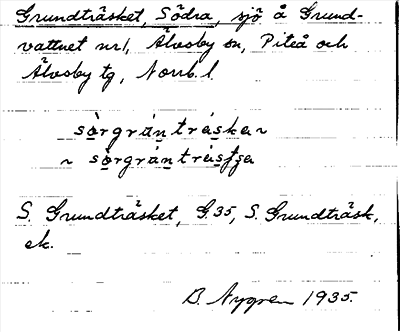 Grundträsket, Södra, sjö å Grund-
vattnet nr 1, Älvsby sn, Piteå och
Älvsby tg, Norrb. l.
sòrgràntráskən
~ sòrgràntrásʃʃa
S. Grundträsket, G.35, S. Grundträsk,
ek.
B. Nygren 1935.